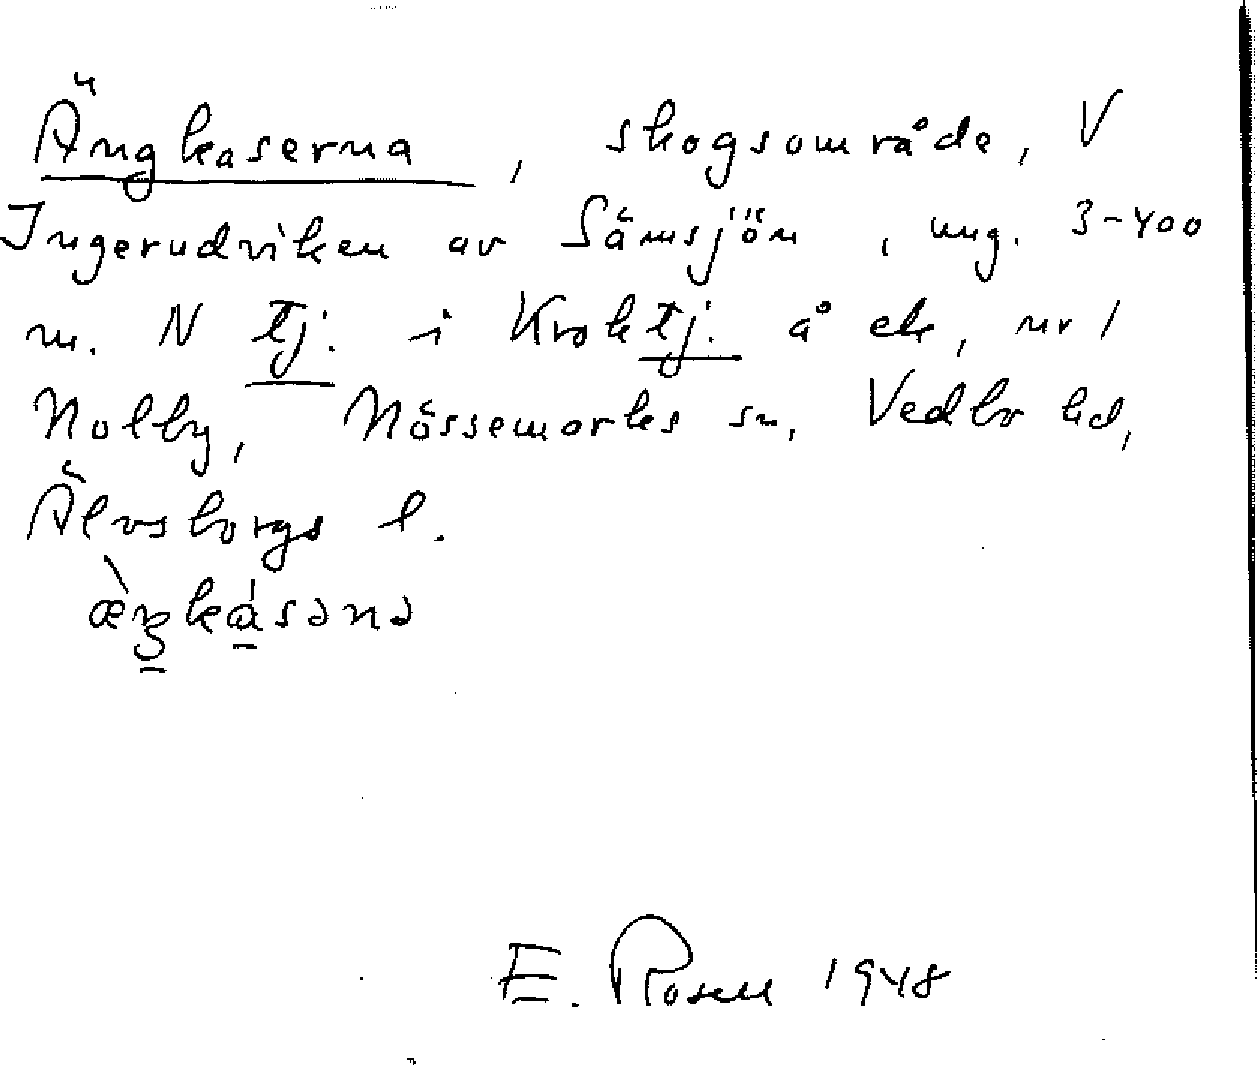 Ängkaserna, skogsområde, V
Ingerudviken av Sämsjön, ung. 3-400
m. N tj. i Kroktj. å ek, nr 1
Nolby, Nössemarks sn, Vedbo hd,
Älvsborgs l.
E. Rosell 1948